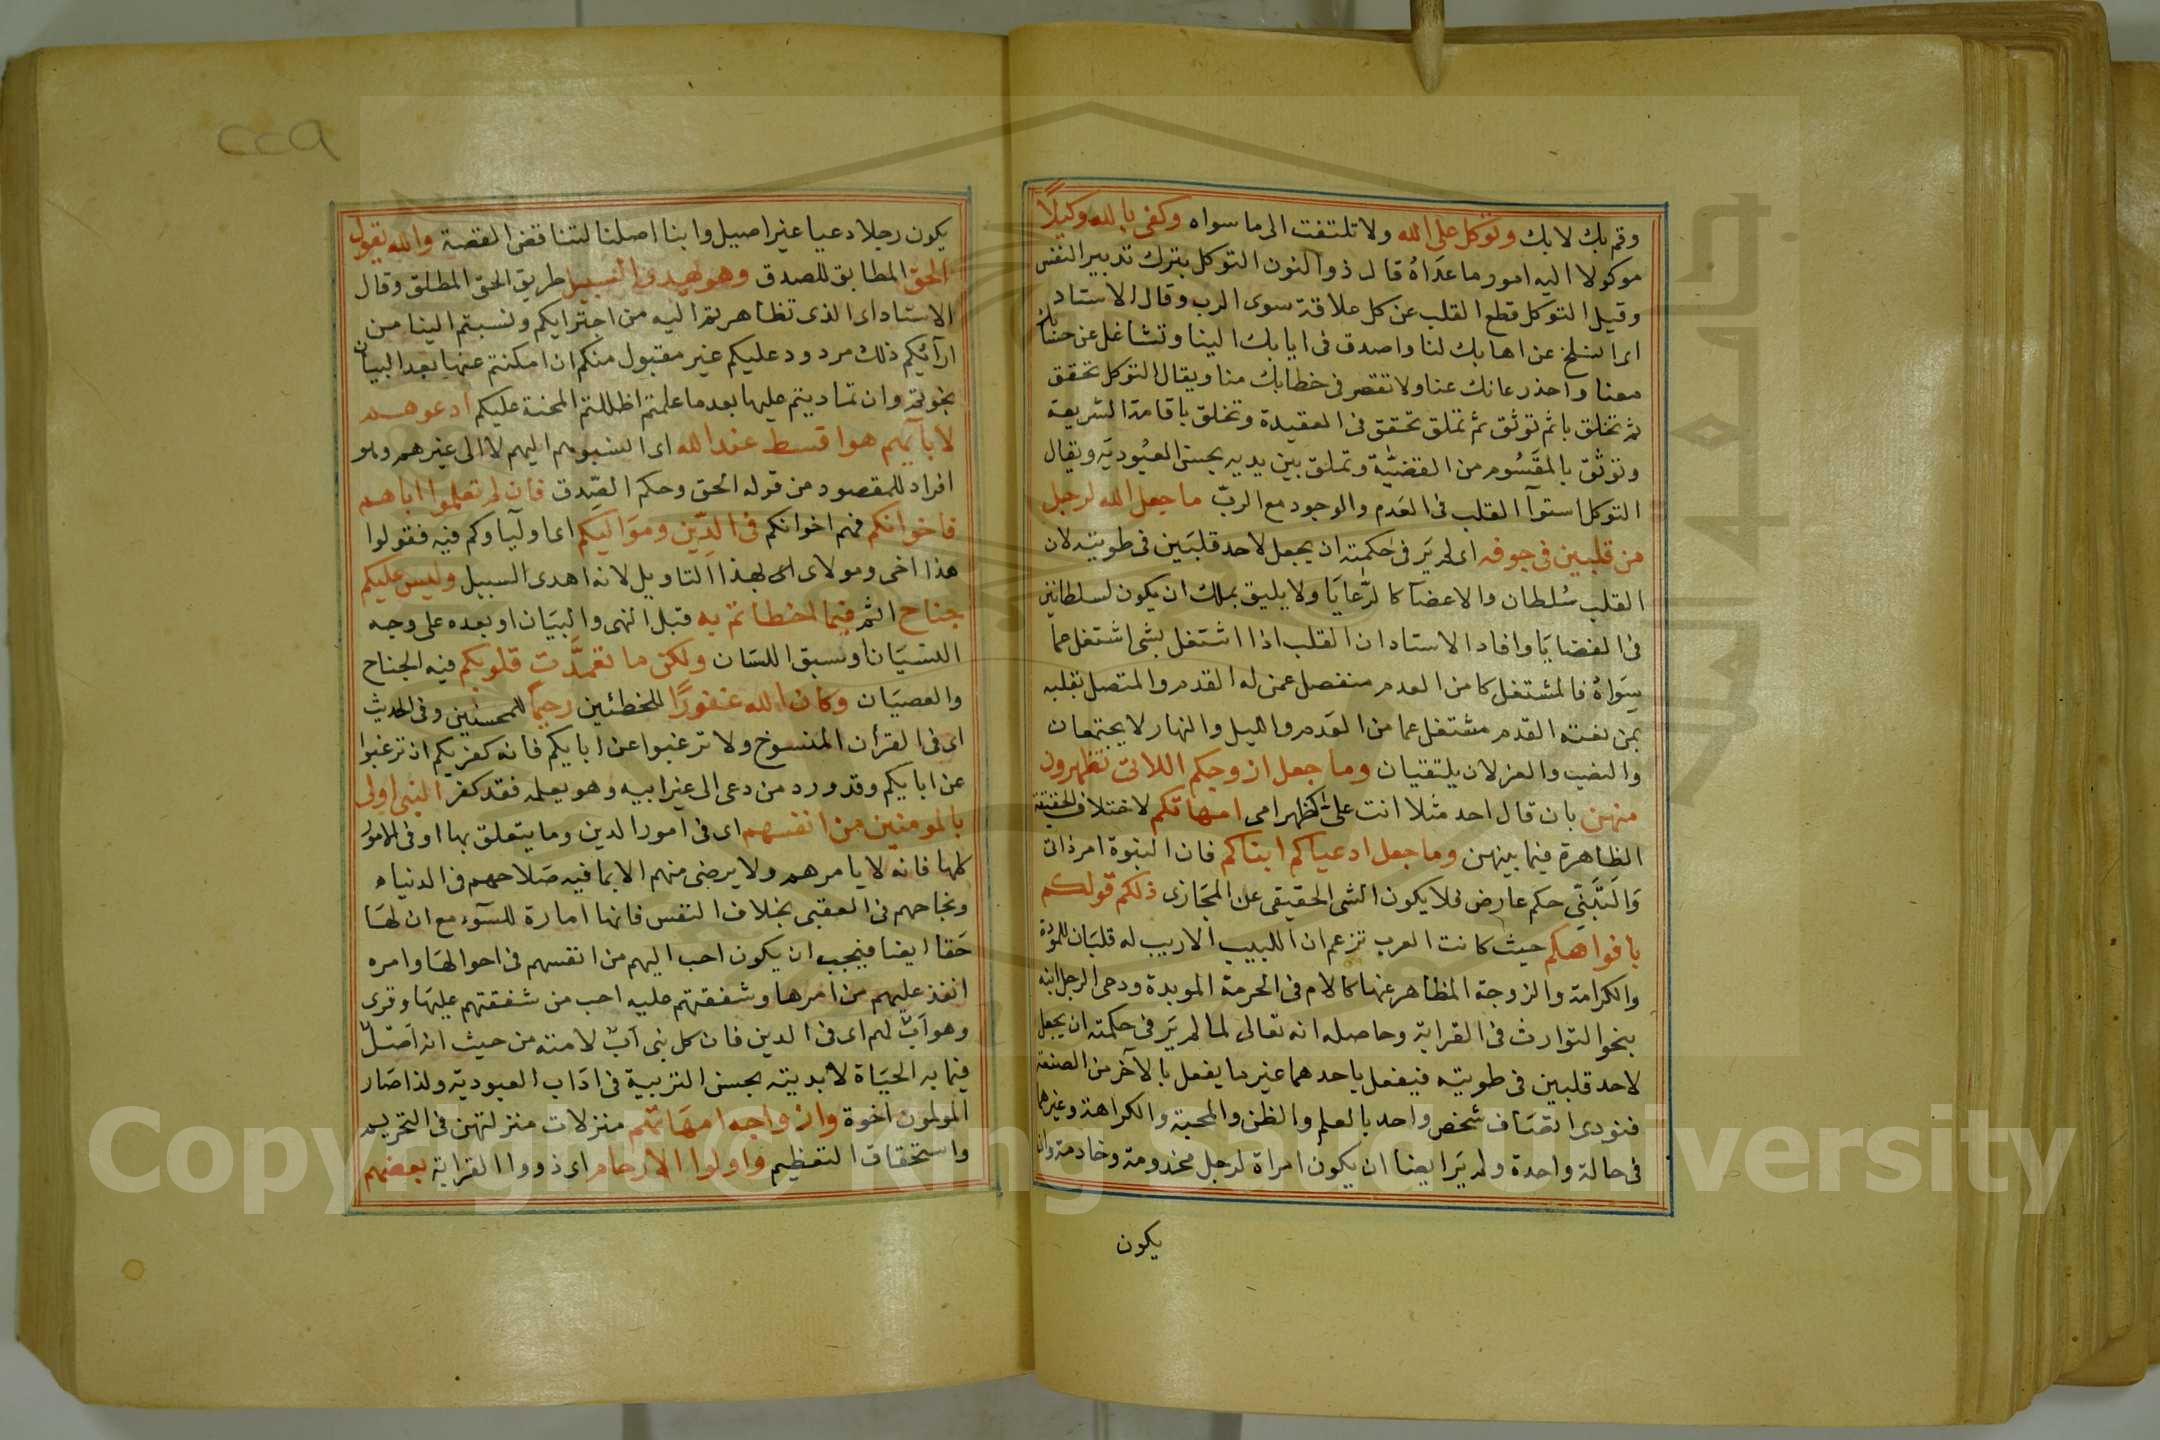 وقم بك لا بك وتوكل على الله ولا تلتفت الى ما سواه وكفى بالله وكيلا
موكولا اليه امور ما عداه قال ذو النون التوكل بترك تدبير النفس
وقيل التوكل قطع القلب عن كل علاقة سوى الرب وقال الاستاد
اى انسلخ عن اهابك لنا واصدق فى ايابك الينا وتشاغل عن
معنا واحذر عنا ولا تقصر فى خطابك منا ويقال التوكل تحقق
ثم تخلق باثم توثق ثم تملق تحقق فى العقيدة وتخلق باقامة الشريعة
وتوثق بالمقسوم من القضية وتملق بين يديه بحسن العبودية ويقال
التوكل استوآ القلب فى العدم والوجود مع الرب ما جعل الله لرجل
من قلبين فى جوفه اى لم ير فى حكمته ان يجعل لاحد قلبين فى طويته لان
القلب سلطان والاعضآ كالرعايا ولا يليق بملك ان يكون لسلطانين
فى القضايا وافاد الاستاد ان القلب اذا اشتغل بشى اشتغل عما
سواه فالمشتغل كا من العدم منفصل عمن له القدم والمتصل بقلبه
بمن نعته القدم مشتغل عما من العدم والليل والنهار لا يجتمعان
والغيب والعز لان يلتقيان وما جعل ازوجكم اللائى تظهرون
منهن بان قال احد مثلا انت على كظهر امى امهاتكم لاختلاف الحقيقة
الظاهرة فيما بينهن وما جعل ادعياكم ابناكم فان البنوة امر ذاتى
والتبنى حكم عارض فلا يكون الشى الحقيقى عن المجازى ذلكم قولكم
بافواهكم حيث كانت العرب تزعم ان اللبيب الاريب له قلبان للمودة
والكرامة والزوجة المظاهر عنها كالام فى الحرمة الموبدة ودعى الرجل ابنه
بنحو التوارث فى القرابة وحاصله انه تعالى لما لم ير فى حكمته ان يجعل
لاحد قلبين فى طويته فيفعل باحدهما غير ما يفعل بالآخر من الصنعة
فنودى اتصاف شخص واحد بالعلم والظن والمحبة والكراهة وغيرها
فى حالة واحدة ولم ير ايضا ان يكون امراة لرجل مخدومة وخادمة وان
يكون
٢٢٩
يكون رجلا دعيا غير اصيل وابنا اصلنا لتناقض القصة والله يقول
الحق المطابق للصدق وهو يهدى السبيل طريق الحق المطلق وقال
الاستاد اى الذى تظاهرتم اليه من اجترايكم ونسبتم الينا من
ارآئكم ذلك مردود عليكم غير مقبول منكم ان امكنتم عنها بعد البيان
نجوتم وان تماديتم عليها بعد ما علمتم اظللتم المحنة عليكم ادعوهم
لابآيهم هو اقسط عند الله اى انسبوهم اليهم لا الى غيرهم وهو
افراد للمقصود من قوله الحق وحكم الصدق فان لم تعلموا اباهم
فاخوانكم فهم اخوانكم فى الدين ومواليكم اى اوليآوكم فيه فقولوا
هذا اخى ومولاى اى بهذا التاويل لانه اهدى السبيل وليس عليكم
جناح اثم فيما اخطاتم به قبل النهى والبيان او بعده على وجه
النسيان او سبق اللسان ولكن ما تعمدت قلوبكم فيه الجناح
والعصيان وكان الله غفورا للمخطئين رحيما للمحسنين وفى الحديث
اى فى القرأن المنسوخ ولا ترغبوا عن ابايكم فانه كفر بكم ان ترغبوا
عن ابايكم وقد ورد من دعى الى غير ابيه وهو يعلمه فقد كفر النبى اولى
بالمومنين من انفسهم اى فى امور الدين وما يتعلق بها او فى الامور
كلها فانه لا يامرهم ولا يرضى منهم الا بما فيه صلاحهم فى الدنياه
ونجاحهم فى العقبى بخلاف النفس فانها امارة للسوء مع ان لها
حقا ايضا فيجب ان يكون احب اليهم من انفسهم فى احوالها وامره
انفذ عليهم من امرها وشفقتهم عليه احب من شفقتهم عليها وقرى
وهو اب لهم اى فى الدين فان كل نبى اب لامته من حيث انه اصل
فيما به الحياة لابديته بحسن التربية فى اداب العبودية ولذا صار
المومنون اخوة وازواجه امهاتهم منزلات منزلتهن فى التحريم
واستحقاق التعظيم واولوا الارحام اى ذووا القرابة بعضهم
Copyright © King Saud University